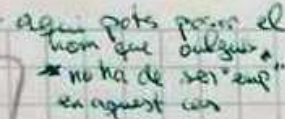 - aquí pots posar el
nom que vulguis,
* no ha de ser "emp"
en aquest cas